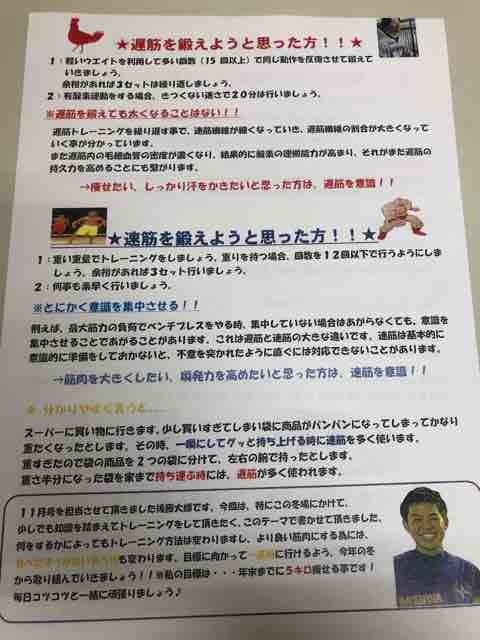 ★遅筋を鍛えようと思った方！！★
１：軽いウエイトを利用して多い回数（15 回以上）で同じ動作を反復させて鍛えて
いきましょう。
余裕があれば３セットは繰り返しましょう。
２：有酸素運動をする場合、きつくない速さで２０分は行いましょう。
※遅筋を鍛えても太くなることはない！！
遅筋トレーニングを繰り返す事で、速筋繊維が細くなっていき、遅筋繊維の割合が大きくなって
いく事が分かっています。
また遅筋内の毛細血管の密度が濃くなり、結果的に酸素の運搬能力が高まり、それがまた遅筋の
持久力を高めることにも繋がります。
→痩せたい、しっかり汗をかきたいと思った方は、遅筋を意識！！
★速筋を鍛えようと思った方！！★
１：重い重量でトレーニングをしましょう。重りを持つ場合、回数を１２回以下で行うようにしま
しょう。余裕があれば３セット行いましょう。
２：何事も素早く行いましょう。
※とにかく意識を集中させる！！
例えば、最大筋力の負荷でベンチプレスをやる時、集中していない場合はあがらなくても、意識を
集中させることであがることがあります。これは遅筋と速筋の大きな違いです。速筋は基本的に
意識的に準備をしておかないと、不意を突かれたように直ぐには対応できないことがあります。
→筋肉を大きくしたい、瞬発力を高めたいと思った方は、速筋を意識！！
※ 分かりやすく言うと…
スーパーに買い物に行きます。少し買いすぎてしまい袋に商品がパンパンになってしまってかなり
重たくなったとします。その時、一瞬にしてグッと持ち上げる時に速筋を多く使います。
重すぎたので袋の商品を２つの袋に分けて、左右の腕で持ったとします。
重さ半分になった袋を家まで持ち運ぶ時には、遅筋が多く使われます。
１１月号を担当させて頂きました浅原大郷です。今回は、特にこの冬場にかけて、
少しでも知識を踏まえてトレーニングをして頂きたく、このテーマで書かせて頂きました。
何をするかによってもトレーニング方法は変わりますし、より良い筋肉にする為には、
も変わります。目標に向かって一直線に行けるよう、今年の冬
から取り組んでいきましょう！！※私の目標は・・・年末までに５キロ痩せる事です！
毎日コツコツと一緒に頑張りましょう♪